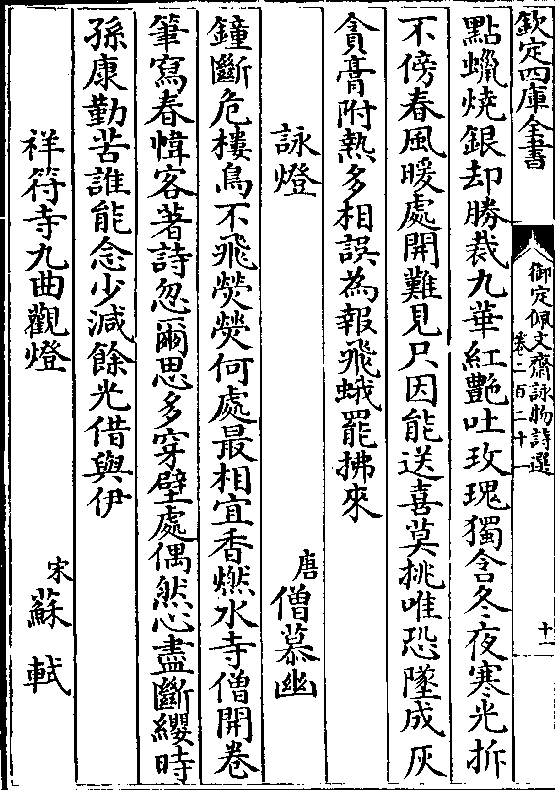 欽定四庫全書
御定佩文齋詠物詩選
卷二百二十一
十一
點蠟燒銀却勝裁九華紅艷吐玫瑰獨含冬夜寒光拆
不傍春風暖處開難見尺因能送喜莫挑唯恐墜成灰
貪膏附熱多相誤為報飛蛾罷拂來
詠燈
唐 僧慕幽
鐘斷危樓鳥不飛熒熒何處最相宜香燃水寺僧開卷
筆寫春幃客著詩忽爾思多穿壁處偶然心盡斷纓時
孫康勤苦誰能念少減餘光借與伊
祥符寺九曲觀燈
宋 蘇軾